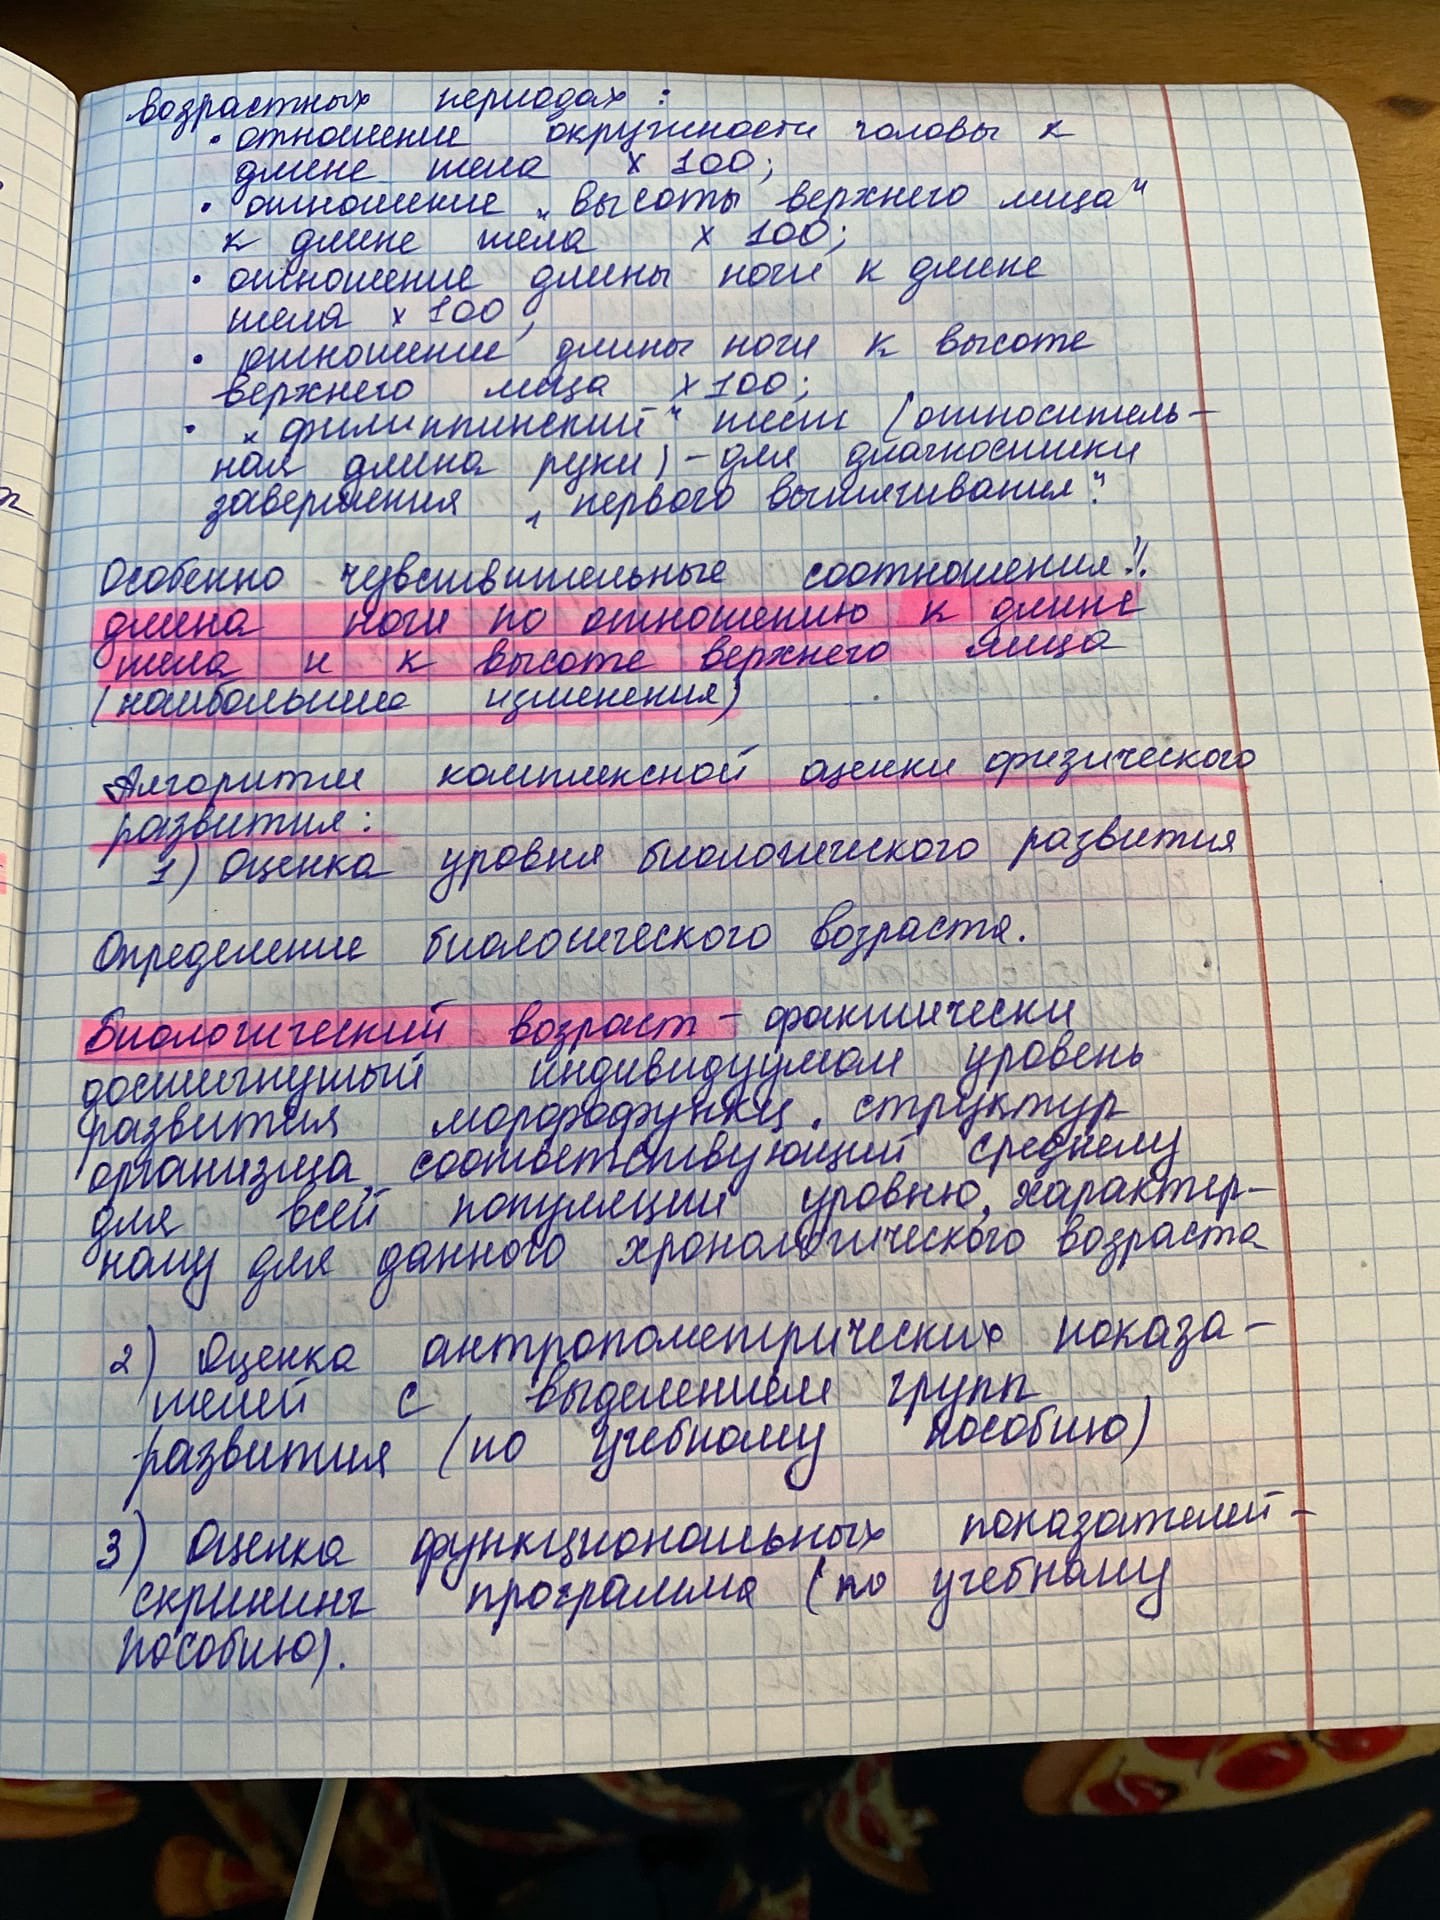 возрастных периодах:
• отношение окружности головы к
длине тела х 100;
• отношение „высоты верхнего лица"
к длине тела х 100;
• отношение длины ноги к длине
тела х 100;
• отношение длины ноги к высоте
верхнего лица х 100;
• „филиппинский" тест (относитель-
ная длина руки) - для диагностики
завершения „первого вытягивания".
Особенно чувствительные соотношения!!
длина ноги по отношению к длине
тела и к высоте верхнего лица
(наибольшие изменения)
Алгоритм комплексной оценки физического
развития:
1) Оценка уровня биологического развития
Определение биологического возраста.
Биологический возраст - фактически
достигнутый индивидуумом уровень
развития морфофункц. структур
организма, соответствующий среднему
для всей популяции уровню, характер-
ному для данного хронологического возраста
2) Оценка антропометрических показа-
телей с выделением групп
развития (по учебному пособию)
3) Оценка функциональных показателей -
скрининг программа (по учебному
пособию).